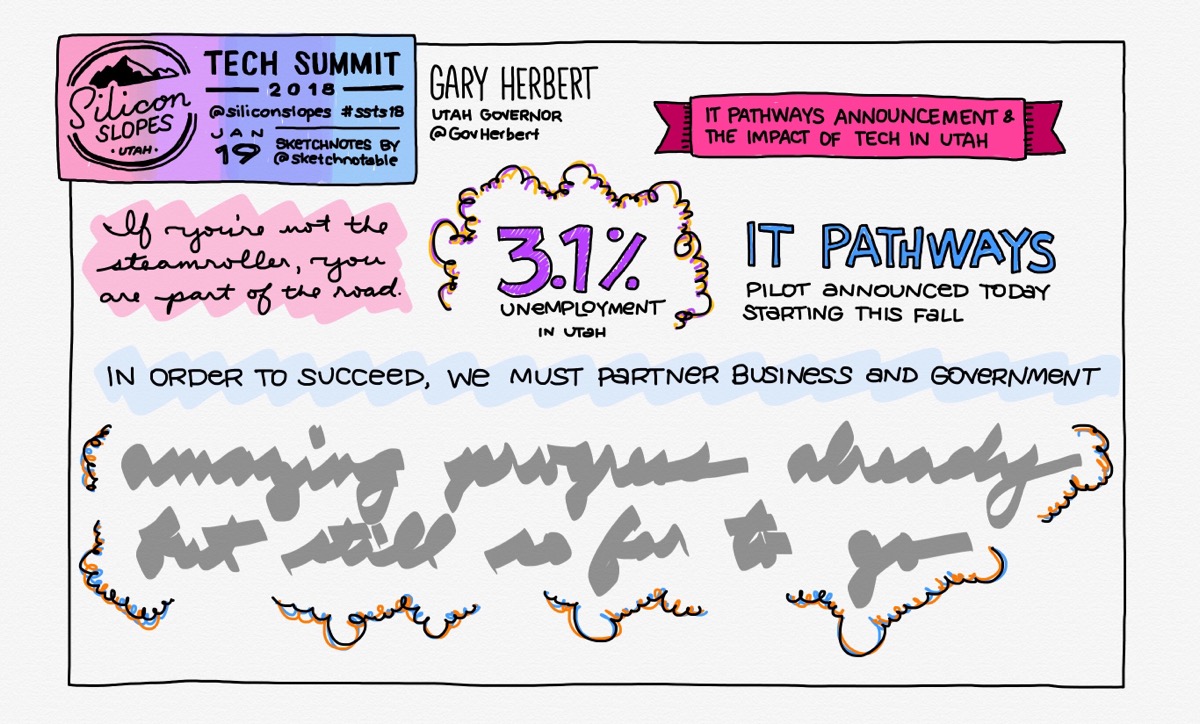 Silicon
SLOPES
• UTAH •
TECH SUMMIT
2018
@siliconslopes #ssts18
JAN
19
SKETCHNOTES BY
@sketchnotable
GARY HERBERT
UTAH GOVERNOR
@GovHerbert
IT PATHWAYS ANNOUNCEMENT &
THE IMPACT OF TECH IN UTAH
If you're not the
steamroller, you
are part of the road.
3.1%
UNEMPLOYMENT
IN UTAH
IT PATHWAYS
PILOT ANNOUNCED TODAY
STARTING THIS FALL
IN ORDER TO SUCCEED, WE MUST PARTNER BUSINESS AND GOVERNMENT
amazing progress already
but still so far to go